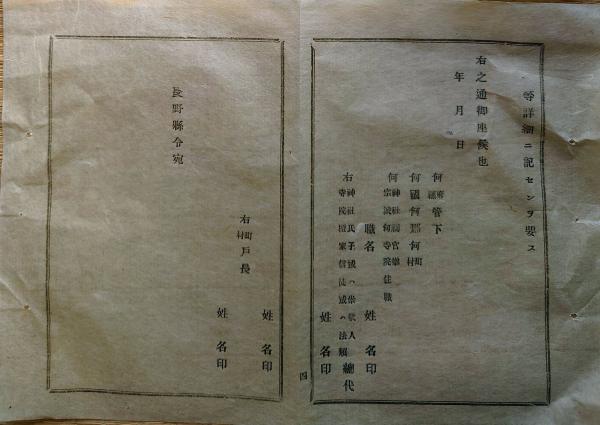 等詳細ニ記センヲ要ス
右之通御座候也
年 月 日
何府縣管下
何國何郡何町村
何神社祠官掌
宗派何寺院住職
職名 姓名印
右神社氏子或ハ崇敬人
寺院檀家信徒或ハ法類 總代
姓名印
四
右町村戸長
姓名印
姓名印
長野縣令宛